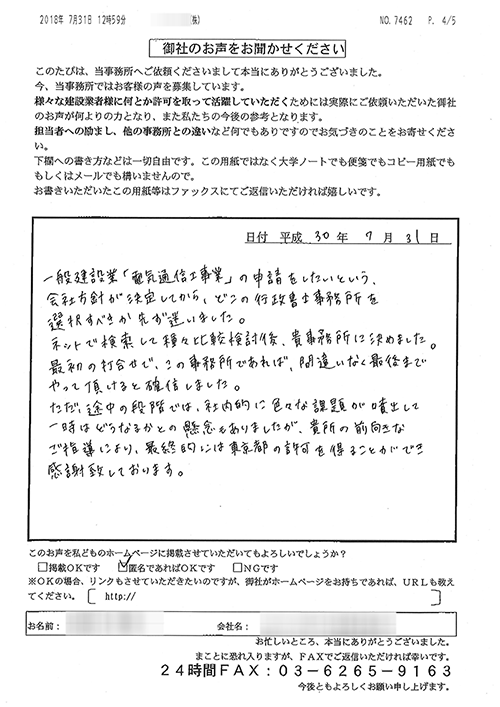 2018年 7月31日 12時59分 (株) NO.7462 P. 4/5
御社のお声をお聞かせください
このたびは、当事務所へご依頼くださいまして本当にありがとうございました。
今、当事務所ではお客様の声を募集しています。
様々な建設業者様に何とか許可を取って活躍していただくためには実際にご依頼いただいた御社
のお声が何よりの力となり、また私たちの今後の参考となります。
担当者への励まし、他の事務所との違いなど何でもありですのでお気づきのことをお寄せくださ
い。
下欄への書き方などは一切自由です。この用紙ではなく大学ノートでも便箋でもコピー用紙でも
もしくはメールでも構いませんので。
お書きいただいたこの用紙等はファックスにてご返信いただければ嬉しいです。
日付 平成 30 年 7 月 31 日
一般建設業「電気通信工事業」の申請をしたいという、
会社方針が決定してから、どこの行政書士事務所を
選択すべきか先ず迷いました。
ネットで検索して種々比較検討後、貴事務所に決めました。
最初の打合せで、この事務所であれば、間違いなく最後まで
やって頂けると確信しました。
ただ、途中の段階では、社内的に色々な課題が噴出して
一時はどうなるかとの懸念もありましたが、貴所の前向きな
ご指導により、最終的には東京都の許可を得ることができ
感謝致しております。
このお声を私どものホームページに掲載させていただいてもよろしいでしょうか?
□掲載OKです ☑匿名であればOKです □NGです
※OKの場合、リンクもさせていただきたいのですが、御社がホームページをお持ちであれば、URLも教え
てください。 [ http:// ]
お名前: 会社名:
お忙しいところ、本当にありがとうございました。
まことに恐れ入りますが、FAXでご返信いただければ幸いです。
24時間FAX:03-6265-9163
今後ともよろしくお願い申し上げます。